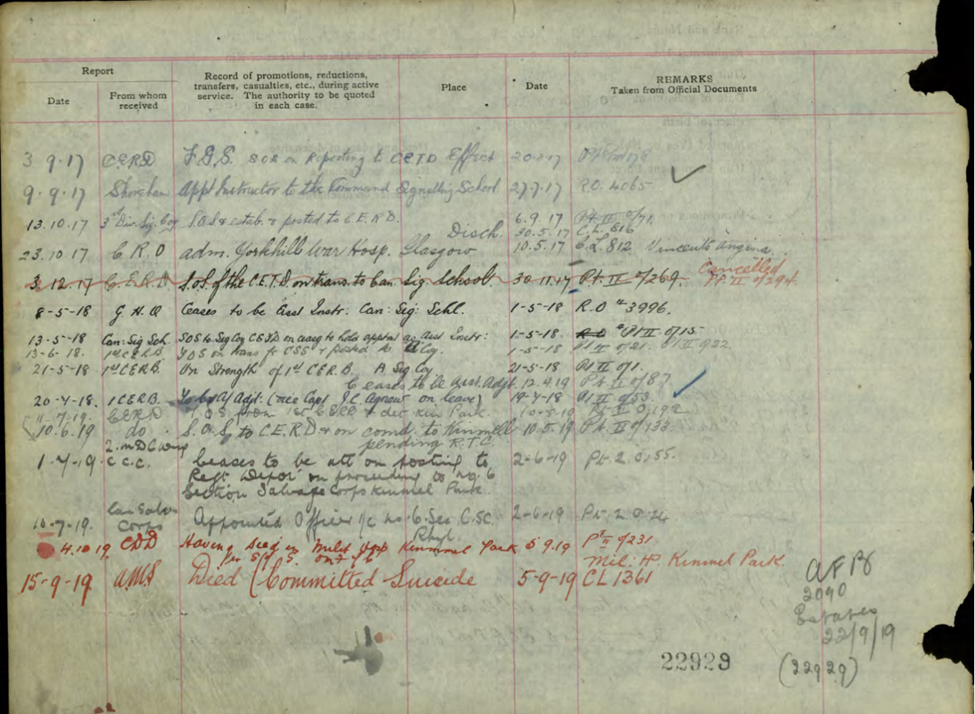 Report
Date
From whom received
Record of promotions, reductions,
transfers, casualties, etc., during active
service. The authority to be quoted
in each case.
Place
Date
REMARKS
Taken from Official Documents
3 9.17 CERD S.O.S. on Reporting to CETD Effect
9.9.17 Shorcham Appt Instructor to the Command Signalling School 27.7.17 R.O. 4065
13.10.17 3rd Div. Sig. Coy S.O.S estab. & posted to C.E.R.D. 6.9.17 Pt. II 0/71.
Disch. 30.5.17 C.L. 816
23.10.17 C.R.O adm. Yorkhill War Hosp. Glasgow 10.5.17 C.L. 812 Vincent's Angina
3.12.17 C.E.R.D S.O.S. of the C.E.T.D. on trans. to Can. Sig. School. 30.11.17 Pt. II 0/269. Cancelled Pt. II 0/294.
8-5-18 G.H.Q Ceases to be Asst Instr. Can: Sig: Schl. 1-5-18 R.O # 3996.
13-5-18 Can: Sig Sch. SOS to Sig Coy CETD on ceasg to hold appmt as Asst Instr: 1-5-18. Pt II 0/15
13-6-18. 1st CERB. TOS on trans fr CSS & posted to Coy. 1-5-18 Pt II 0/21.
21-5-18 1st CERB. On Strength of 1st C.E.R.B. A Sig Coy 21-5-18 Pt II 0/1.
Ceases to be Asst. Adjt. 12.4.19 Pt II 0/87
20-4-18. 1 CERB. To be A/Adjt. (vice Capt. J.C. Agnew on leave) 19-4-18 Pt II 0/53
11.7.19. CERD T.O.S. from 1st CERB & det Kin Park. 10-5-19 Pt II 0/192
10.6.19 do. S.O.S to C.E.R.D & on comd. to Kinmell 10.5.19 Pt. II 0/133.
pending R.T.C.
1-7-19. C.C.C. Ceases to be att on posting to 2-6-19 Pt. 2. 0.155.
Regt. Depot on proceeding to No. 6
Section Salvage Corps Kinmel Park.
10-7-19. Can Salv. Corps Appointed Officer i/c No. 6 Sec. C.SC. 2-6-19 Pt. 2. 0.24
Rhyl.
4.10.19 CDD Having died in Milit Hosp Kinmel Park 5.9.19 Pt II 0/231
Mil: H. Kinmel Park.
15-9-19 A.M.S Died (Committed Suicide 5-9-19 CL 1361
AFB
2090
Estates
22/9/19
22929
(22929)